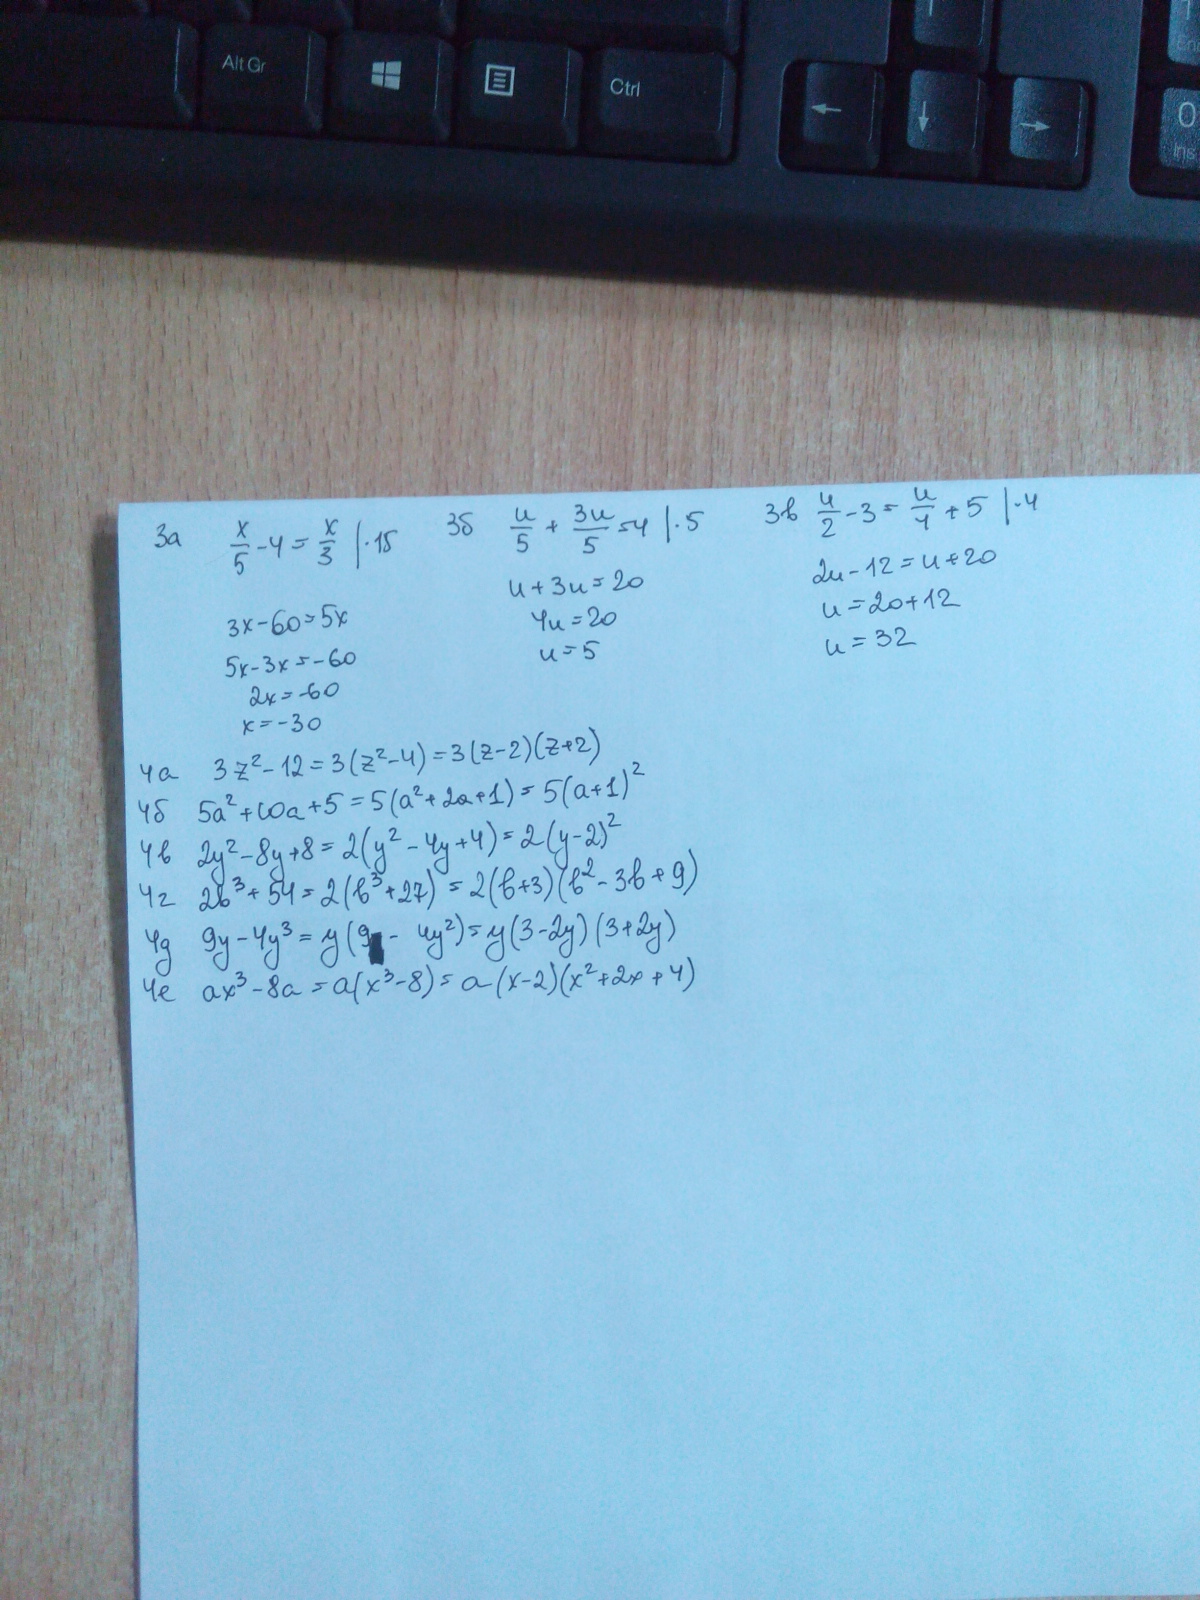 Alt Gr
Ctrl
0
Ins
3а x/5 - 4 = x/3 |·15
3x - 60 = 5x
5x - 3x = -60
2x = -60
x = -30
3б u/5 + 3u/5 = 4 |·5
u + 3u = 20
4u = 20
u = 5
3в u/2 - 3 = u/4 + 5 |·4
2u - 12 = u + 20
u = 20 + 12
u = 32
4а 3z² - 12 = 3(z² - 4) = 3(z - 2)(z + 2)
4б 5a² + 10a + 5 = 5(a² + 2a + 1) = 5(a + 1)²
4в 2y² - 8y + 8 = 2(y² - 4y + 4) = 2(y - 2)²
4г 2b³ + 54 = 2(b³ + 27) = 2(b + 3)(b² - 3b + 9)
4д 9y - 4y³ = y(9 - 4y²) = y(3 - 2y)(3 + 2y)
4е ax³ - 8a = a(x³ - 8) = a(x - 2)(x² + 2x + 4)